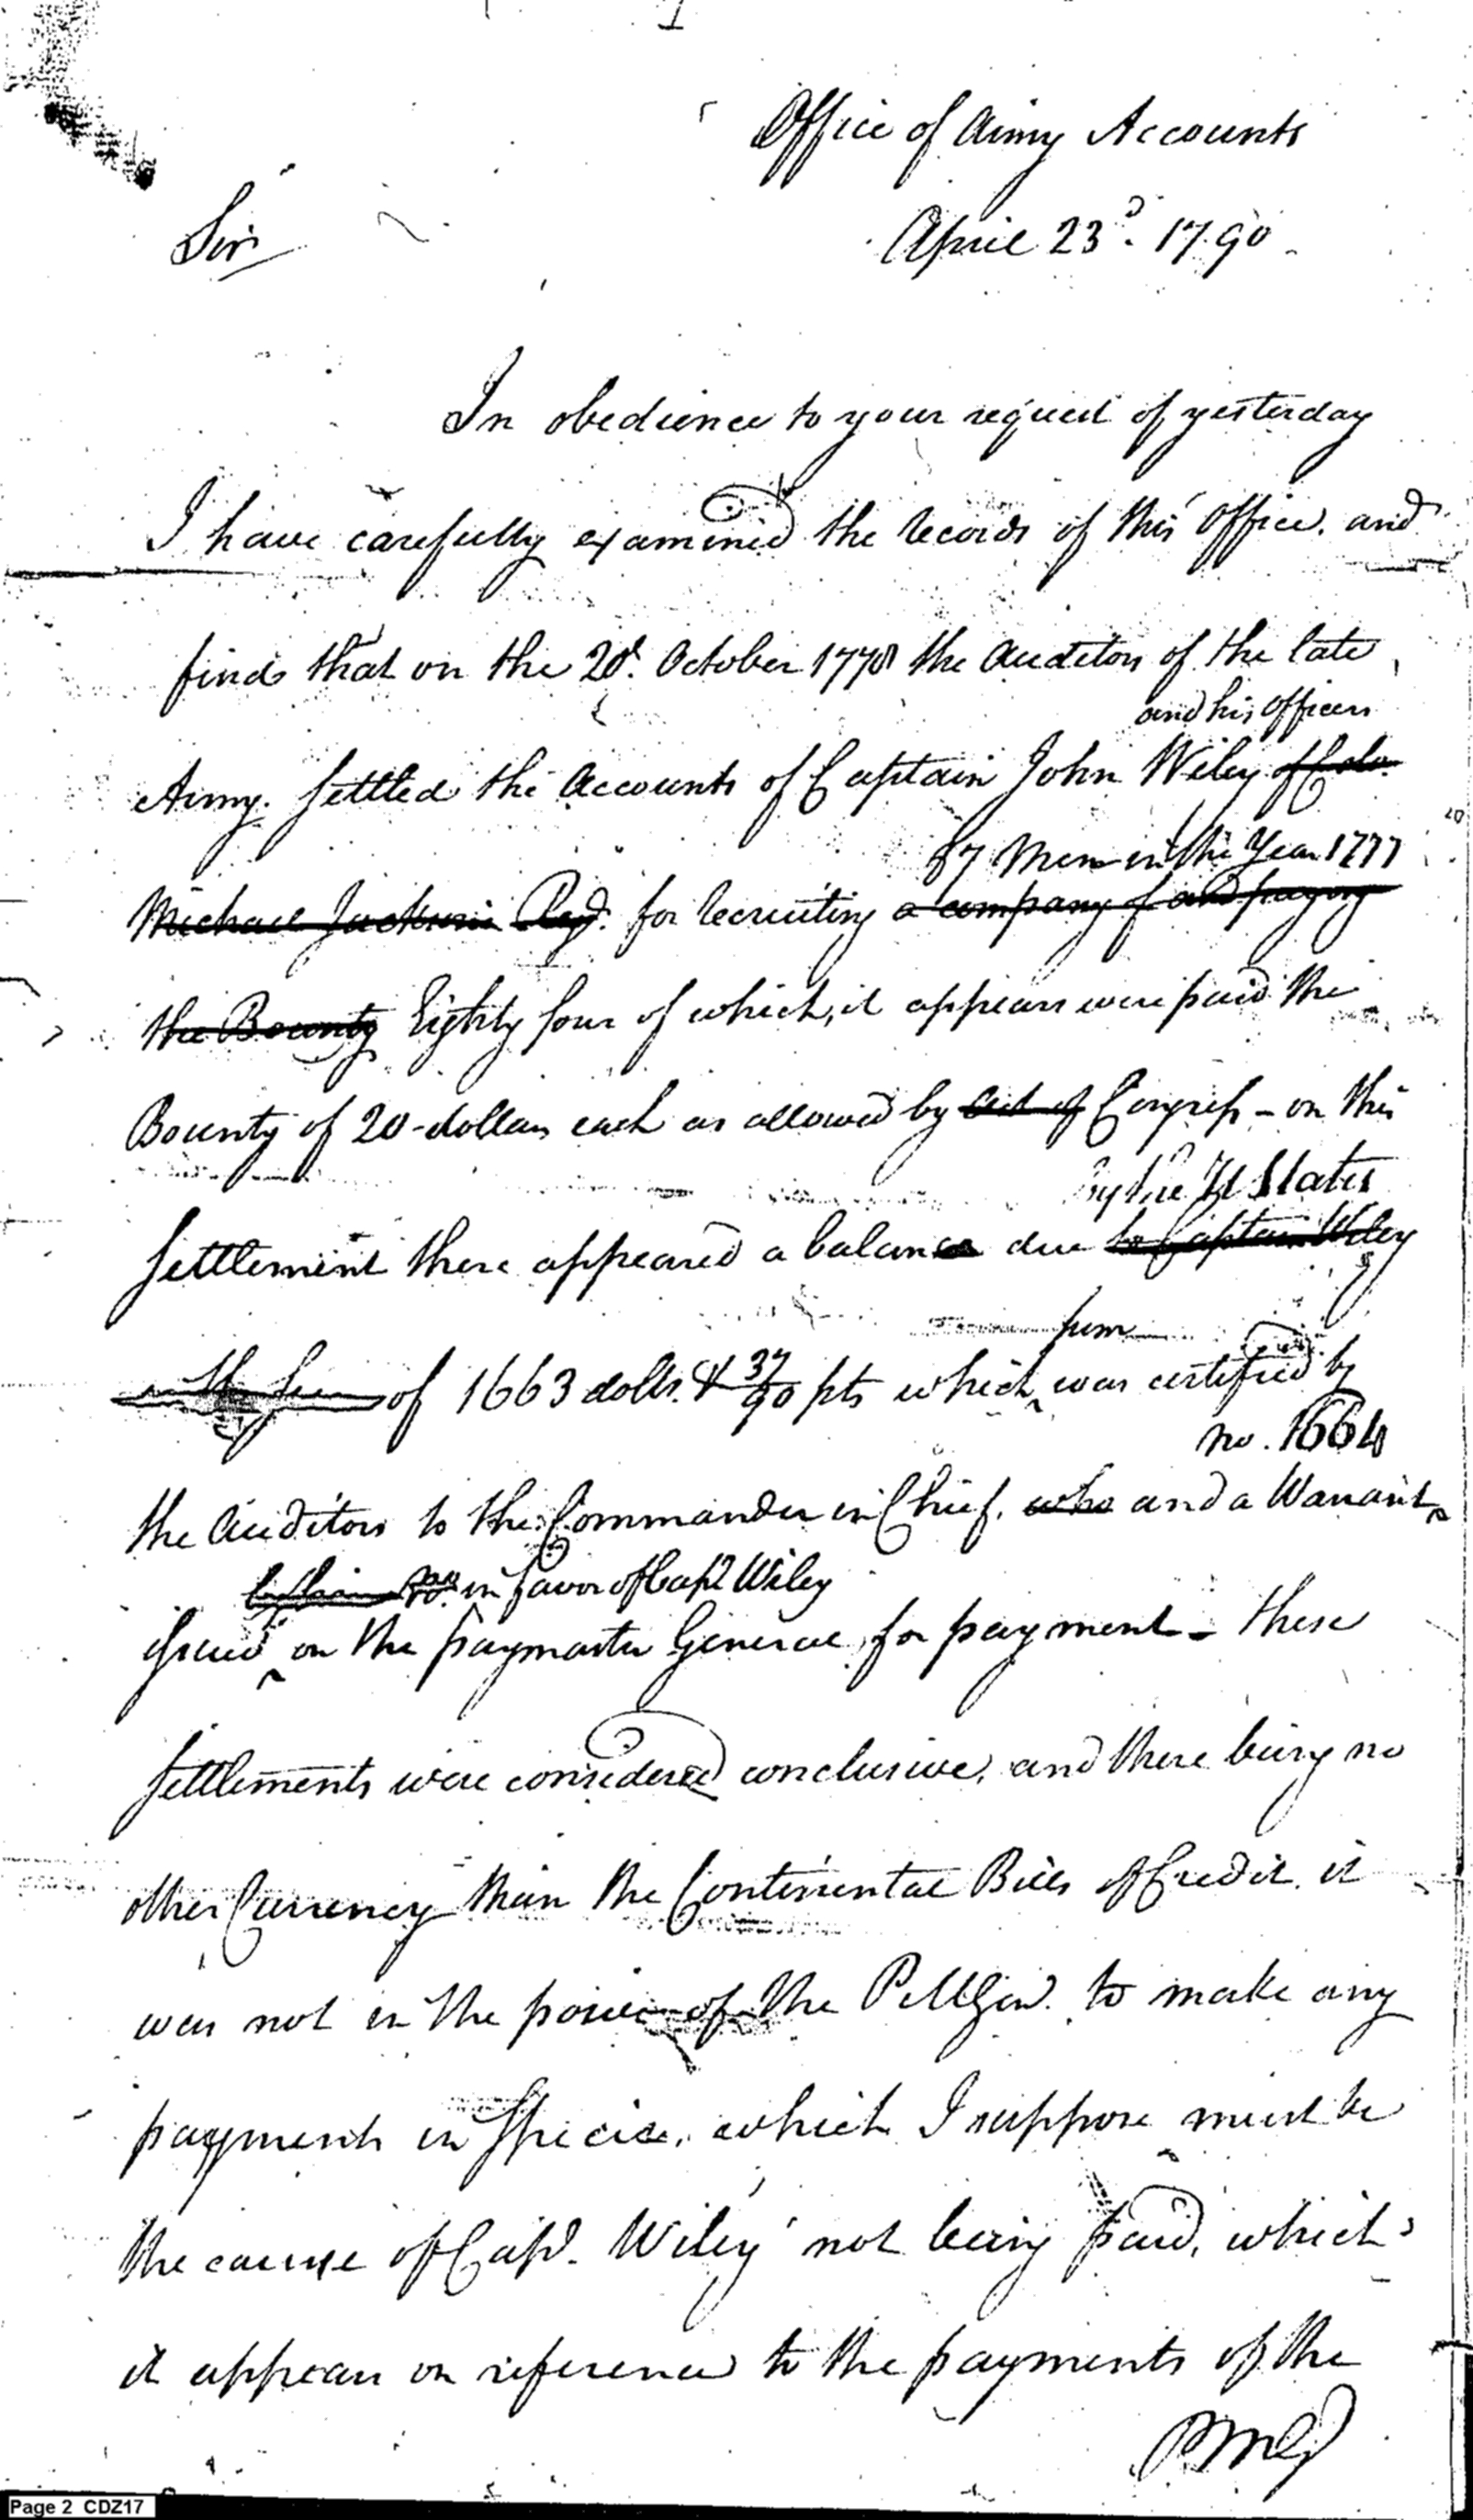 Office of Army Accounts
April 23d. 1790
Sir
In obedience to your request of yesterday
I have carefully examined the records of this Office, and
finds that on the 20th. October 1778 the Auditors of the late
and his Officers
Army. Settled the Accounts of Captain John Wiley of Colo.
87 Men in the Year 1777
Michael Jackson's Regt. for recruiting a company of and paying
the Bounty Eighty four of which, it appears were paid the
Bounty of 20-dollars each as allowed by Act of Congress - on this
by the U States
Settlement there appeared a balance due to Captain Wiley
sum
in the Sum of 1663 dolls. & 37/90 pts which was certified by
no. 1664
the Auditors to the Commander in Chief, who and a Warrant
by him no. in favor of Capt Wiley
issued on the paymaster General for payment - these
Settlements were considered conclusive, and there being no
other Currency than the Continental Bills of Credit, it
was not in the power of the P M Gen. to make any
payments in Specie, which I suppose must be
the cause of Capt. Wiley not being paid, which
it appears on reference to the payments of the
PMG
Page 2 CDZ17